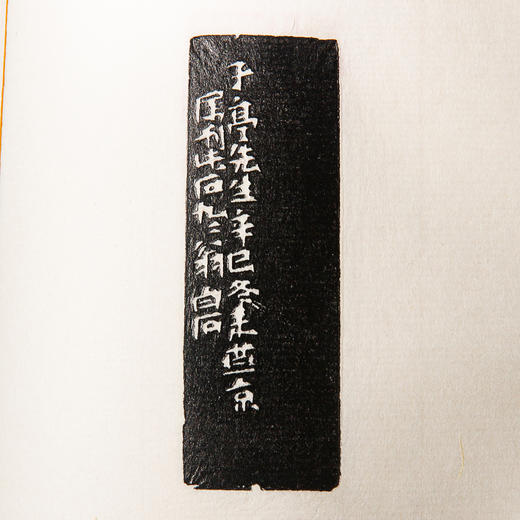 子亭先生辛巳冬来燕京
属刻此石翁白石